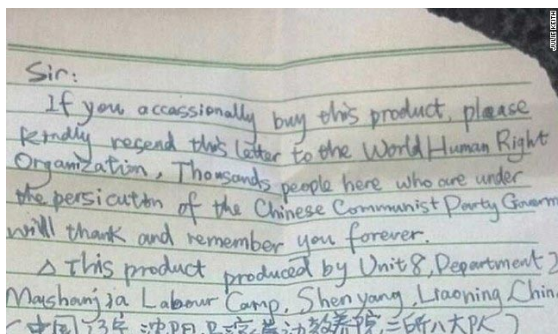 Sir:
If you occassionally buy this product, please
kindly resend this letter to the World Human Right
Organization, Thousands people here who are under
the persicution of the Chinese Communist Party Governm
will thank and remember you forever.
△ This product produced by Unit 8, Department 2
Mashanjia Labour Camp, Shenyang, Liaoning, Chin
JULIE KEITH